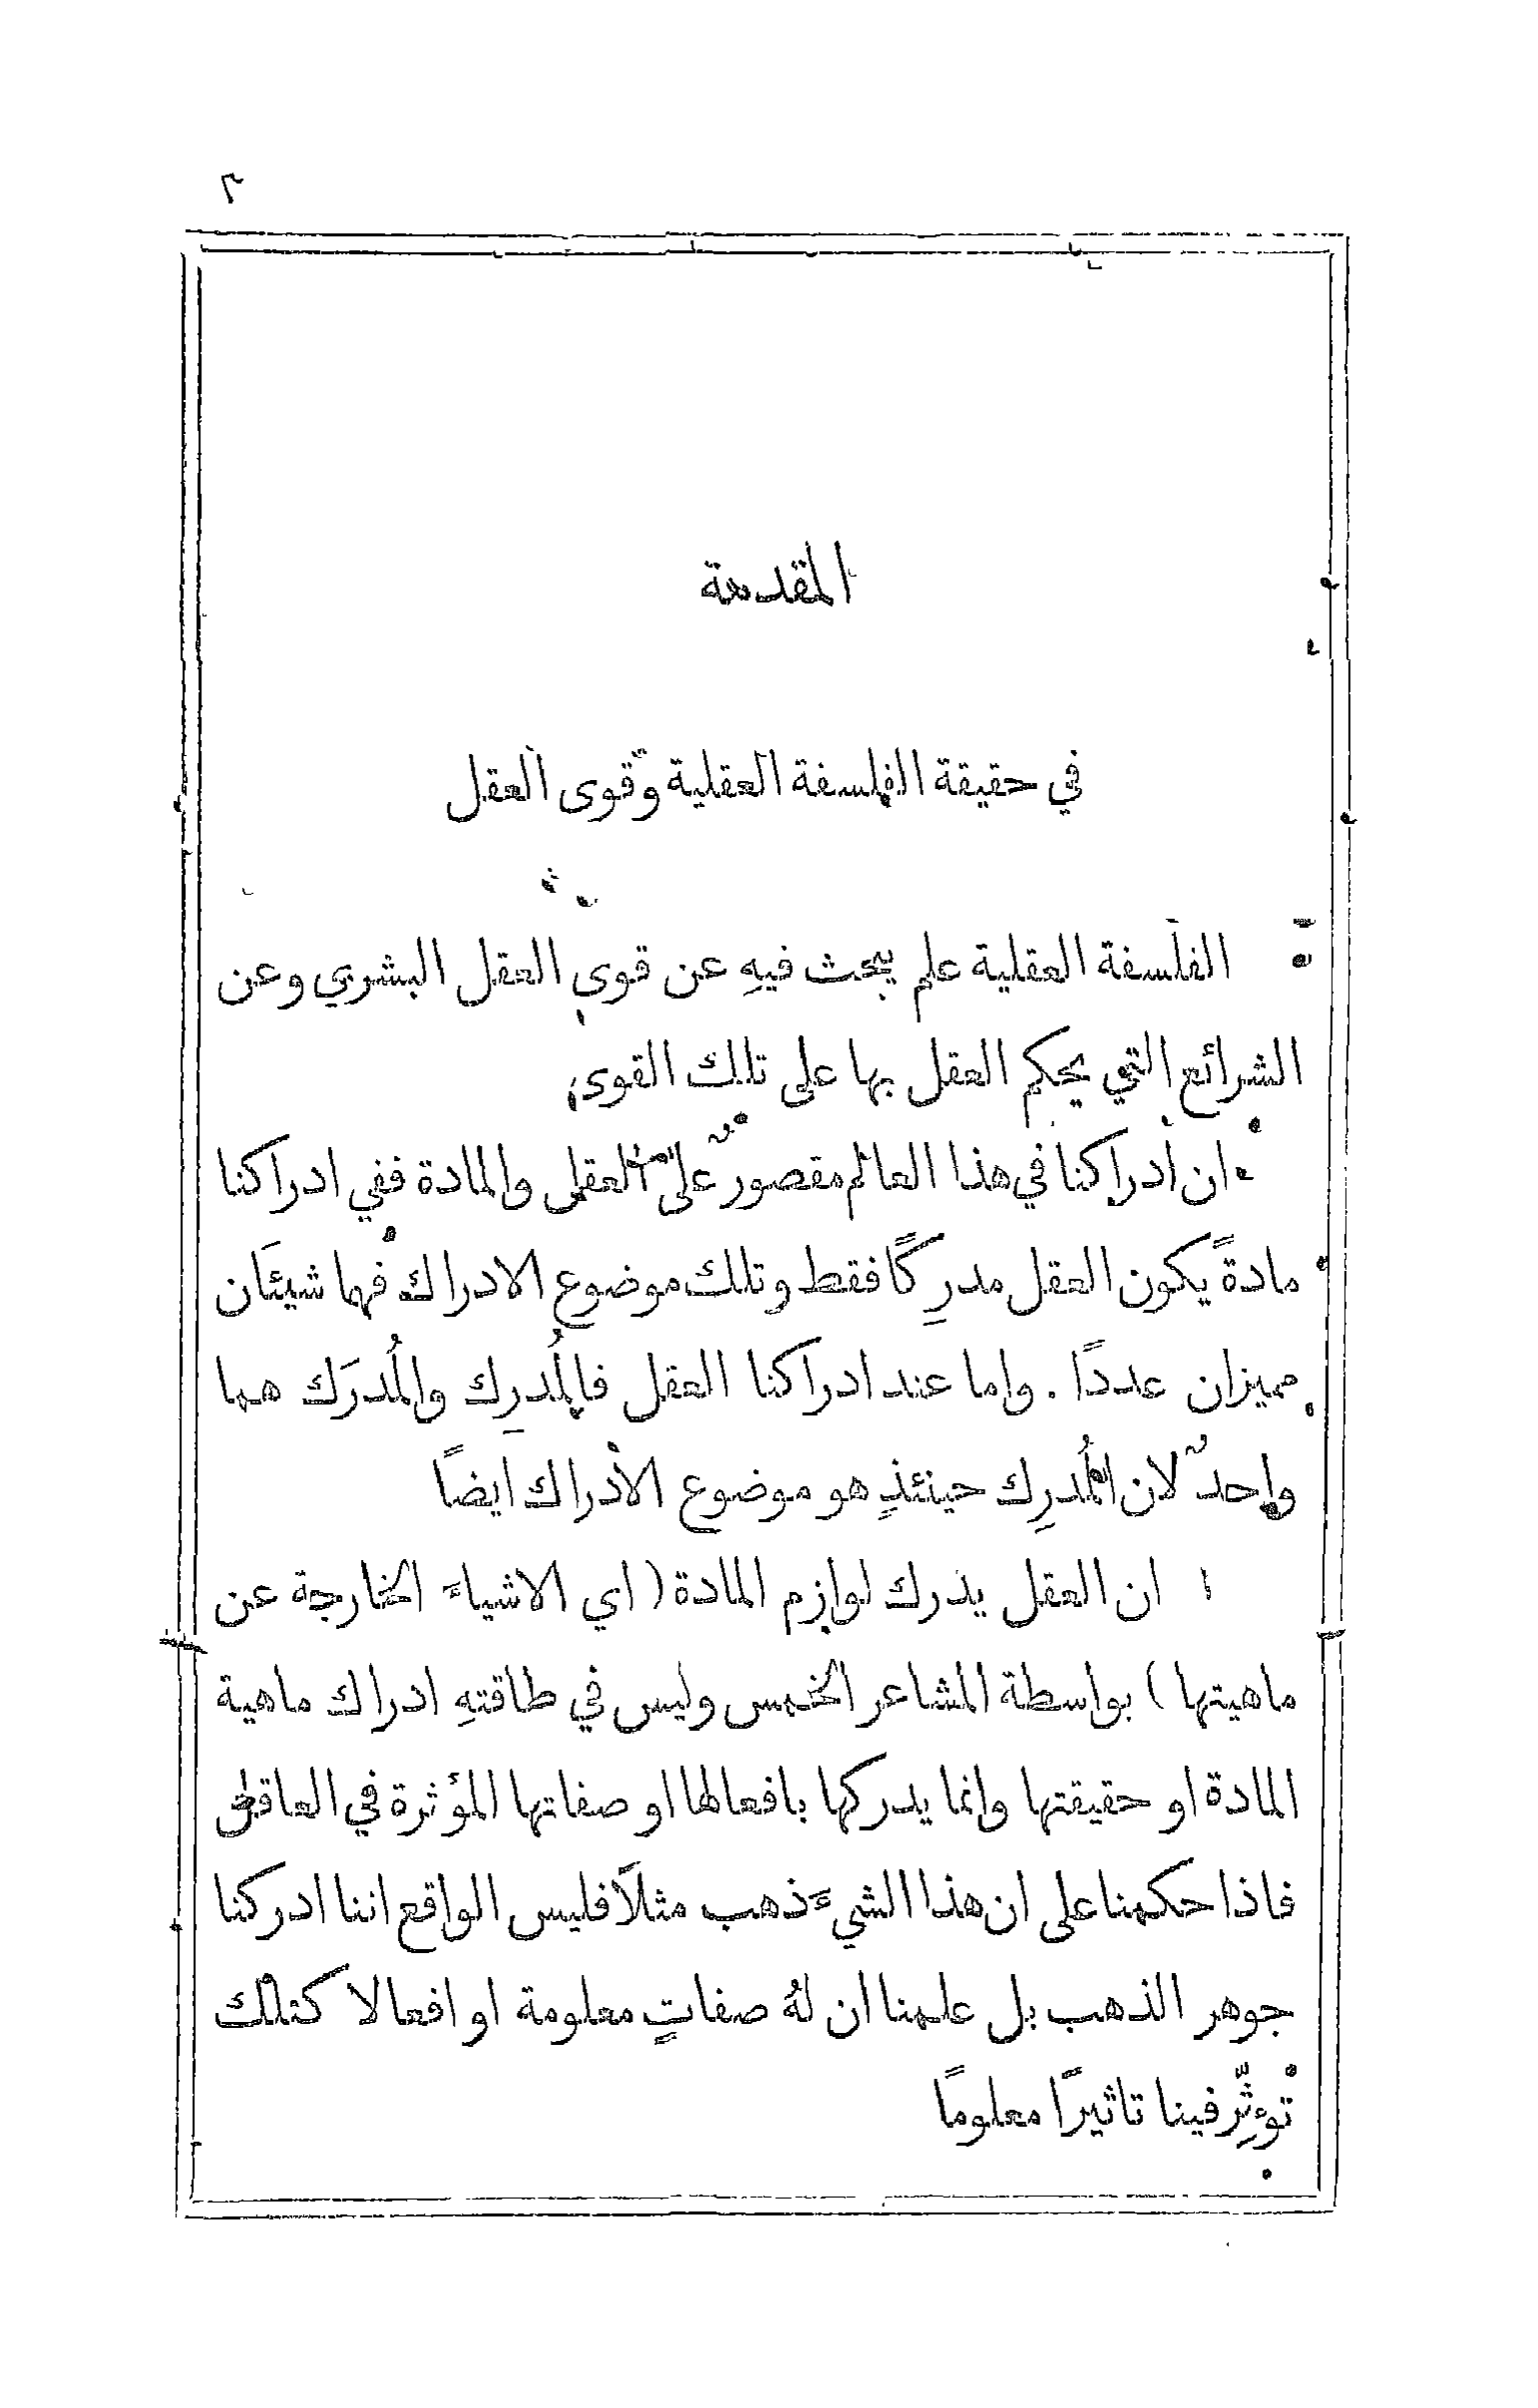 ٢
المقدمة
في حقيقة الفلسفة العقلية وقوى العقل
الفلسفة العقلية علم يبحث فيهِ عن قوى العقل البشري وعن
الشرائع التي يحكم العقل بها على تلك القوى
ان ادراكنا في هذا العالم مقصور على العقل والمادة ففي ادراكنا
مادةً يكون العقل مدرِكًا فقط وتلك موضوع الادراك فهما شيئان
مميزان عددًا . واما عند ادراكنا العقل فالمُدرِك والمُدرَك هما
واحدٌ لان المُدرِك حينئذٍ هو موضوع الادراك ايضًا
١ ان العقل يدرك لوازم المادة ( اي الاشياءَ الخارجة عن
ماهيتها ) بواسطة المشاعر الخمس وليس في طاقتهِ ادراك ماهية
المادة او حقيقتها وانما يدركها بافعالها او صفاتها المؤثرة في العاقل
فاذا حكمنا على ان هذا الشيءَ ذهب مثلاً فليس الواقع اننا ادركنا
جوهر الذهب بل علمنا ان لهُ صفاتٍ معلومة او افعالا كتلك
تؤثِّر فينا تاثيرًا معلومًا